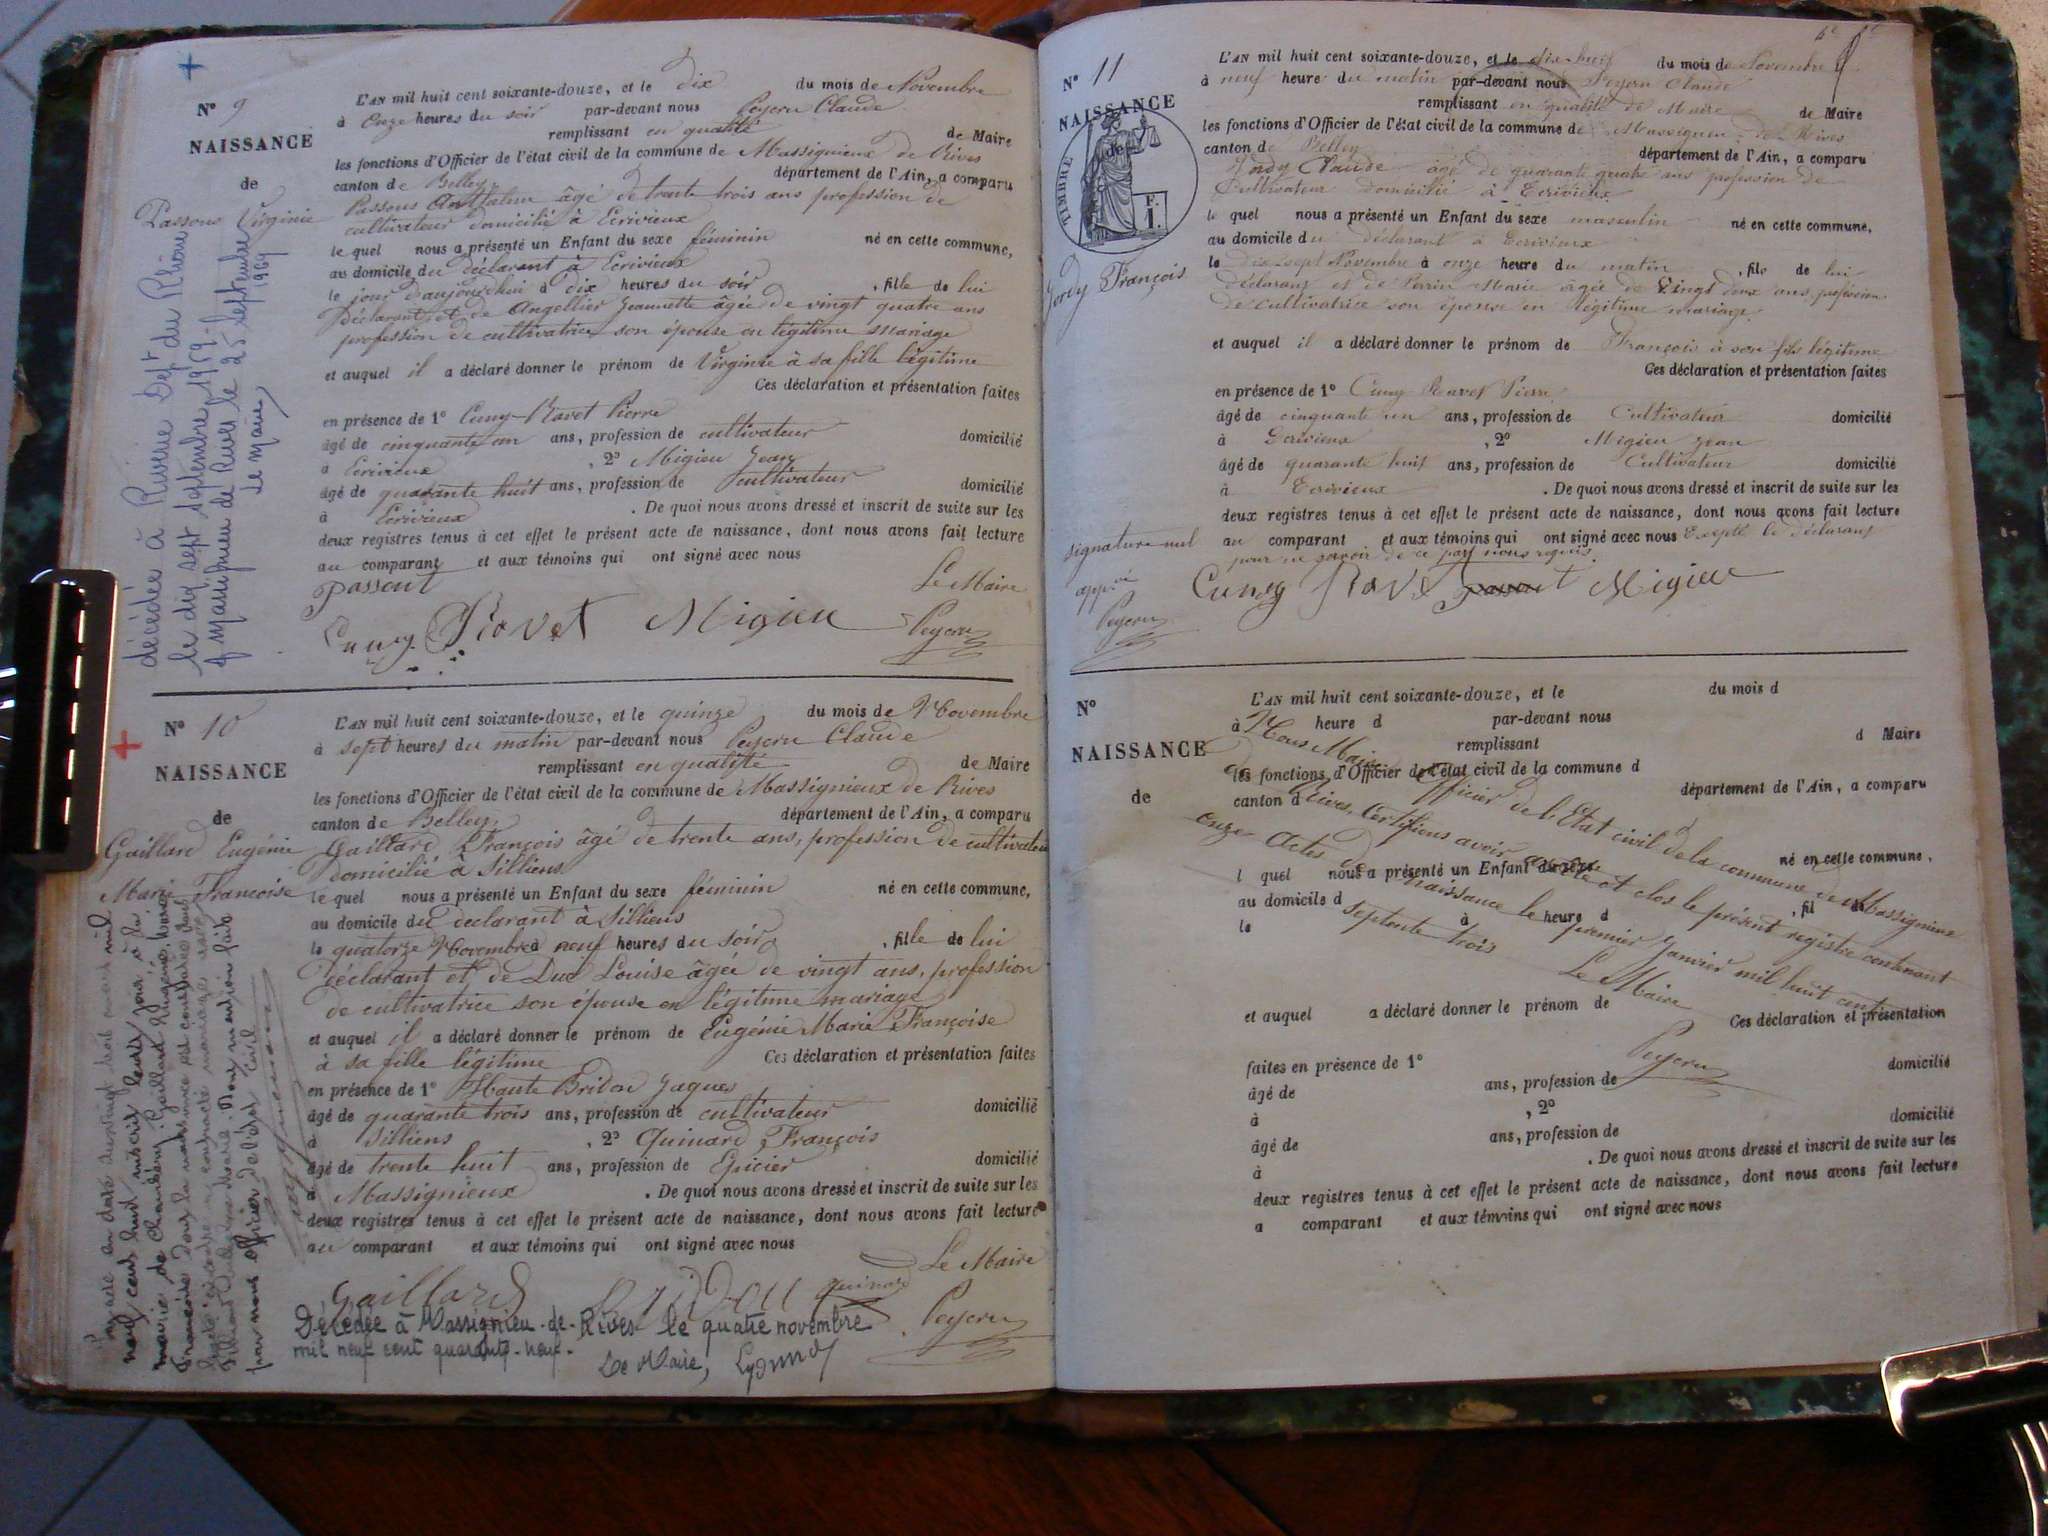 +
N° 9
NAISSANCE
de
Passons Virginie
L'AN mil huit cent soixante-douze, et le dix du mois de Novembre
à Onze heures du soir par-devant nous Peyeru Claude
remplissant en qualité de Maire
les fonctions d'Officier de l'état civil de la commune de Massignieux de Rives
canton de Belley, département de l'Ain, a comparu
Passons âgé de trente trois ans profession de
cultivateur domicilié à Ecrivieux
le quel nous a présenté un Enfant du sexe féminin né en cette commune,
au domicile du déclarant à Ecrivieux
le jour d'aujourd'hui à dix heures du soir, fille de lui
Déclarant et de Angellier Jeannette âgée de vingt quatre ans
profession de cultivatrice son épouse en légitime mariage
et auquel il a déclaré donner le prénom de Virginie à sa fille légitime
Ces déclaration et présentation faites
en présence de 1° Cuny-Ravet Pierre
âgé de cinquante un ans, profession de cultivateur domicilié
à Ecrivieux, 2° Migieu Jean
âgé de quarante huit ans, profession de cultivateur domicilié
à Ecrivieux. De quoi nous avons dressé et inscrit de suite sur les
deux registres tenus à cet effet le présent acte de naissance, dont nous avons fait lecture
au comparant et aux témoins qui ont signé avec nous
passont Le Maire
Cuny Ravet Migieu Peyeru
décédée à Riverie Dépt du Rhône
le dix sept septembre 1969.
Massignieu de Rives le 25 septembre
1969
Le Maire,
+
N° 10
NAISSANCE
de
Gaillard Eugénie
Marie Françoise
L'AN mil huit cent soixante-douze, et le quinze du mois de Novembre
à sept heures du matin par-devant nous Peyeru Claude
remplissant en qualité de Maire
les fonctions d'Officier de l'état civil de la commune de Massignieux de Rives
canton de Belley, département de l'Ain, a comparu
Gaillard François âgé de trente ans, profession de cultivateur
domicilié à Silliens
le quel nous a présenté un Enfant du sexe féminin né en cette commune,
au domicile du déclarant à Silliens
le quatorze Novembre à neuf heures du soir, fille de lui
Déclarant et de Duc Louise âgée de vingt ans, profession
de cultivatrice son épouse en légitime mariage
et auquel il a déclaré donner le prénom de Eugénie Marie Françoise
à sa fille légitime Ces déclaration et présentation faites
en présence de 1° Haute Bridon Jaques
âgé de quarante trois ans, profession de cultivateur domicilié
à Silliens, 2° Quinard François
âgé de trente huit ans, profession de Epicier domicilié
à Massignieux. De quoi nous avons dressé et inscrit de suite sur les
deux registres tenus à cet effet le présent acte de naissance, dont nous avons fait lecture
au comparant et aux témoins qui ont signé avec nous
Le Maire
Gaillard Bridon quinard Peyeru
Décédée à Massignieu-de-Rives le quatre novembre
mil neuf cent quarante-neuf.
Le Maire,
neuf cent huit inscrit
mairie de Chambéry. Gaillard Eugénie Marie
Françoise dont la naissance est constatée
par nous officier de l'état civil
N° 11
NAISSANCE
de
TIMBRE
1 F.
Jordy François
L'AN mil huit cent soixante-douze, et le dix-huit du mois de Novembre
à neuf heure du matin par-devant nous Peyeru Claude
remplissant en qualité de Maire de Maire
les fonctions d'Officier de l'état civil de la commune de Massignieu de Rives
canton de Belley département de l'Ain, a comparu
Jordy Claude âgé de quarante quatre ans profession de
Cultivateur domicilié à Ecrivieux
le quel nous a présenté un Enfant du sexe masculin né en cette commune,
au domicile du déclarant à Ecrivieux
le dix-sept Novembre à onze heure du matin, fils de lui
déclarant et de Perrin Marie âgée de Vingt deux ans profession
De cultivatrice son épouse en légitime mariage.
et auquel il a déclaré donner le prénom de François à son fils légitime
Ces déclaration et présentation faites
en présence de 1° Cuny Ravet Pierre
âgé de cinquante un ans, profession de Cultivateur domicilié
à Ecrivieux, 2° Migieu Jean
âgé de quarante huit ans, profession de Cultivateur domicilié
à Ecrivieux. De quoi nous avons dressé et inscrit de suite sur les
deux registres tenus à cet effet le présent acte de naissance, dont nous avons fait lecture
au comparant et aux témoins qui ont signé avec nous Excepté le déclarant
pour ne savoir de ce par nous requis.
Cuny Ravet passont Migieu
signature nul
Peyeru
N°
NAISSANCE
de
L'AN mil huit cent soixante-douze, et le du mois d
à heure d par-devant nous
remplissant d Maire
les fonctions d'Officier de l'état civil de la commune d
canton d département de l'Ain, a comparu
l quel nous a présenté un Enfant du sexe né en cette commune,
au domicile d
le à heure d, fil de
et auquel a déclaré donner le prénom de
Ces déclaration et présentation
faites en présence de 1°
âgé de ans, profession de domicilié
à, 2°
âgé de ans, profession de domicilié
à. De quoi nous avons dressé et inscrit de suite sur les
deux registres tenus à cet effet le présent acte de naissance, dont nous avons fait lecture
a comparant et aux témoins qui ont signé avec nous
Nous Maire Officier de l'Etat civil de la commune de Massignieu
de Rives, Certifions avoir arrêté et clos le présent registre contenant
onze Actes de naissance le premier Janvier mil huit cent
septante trois
Le Maire
Peyeru